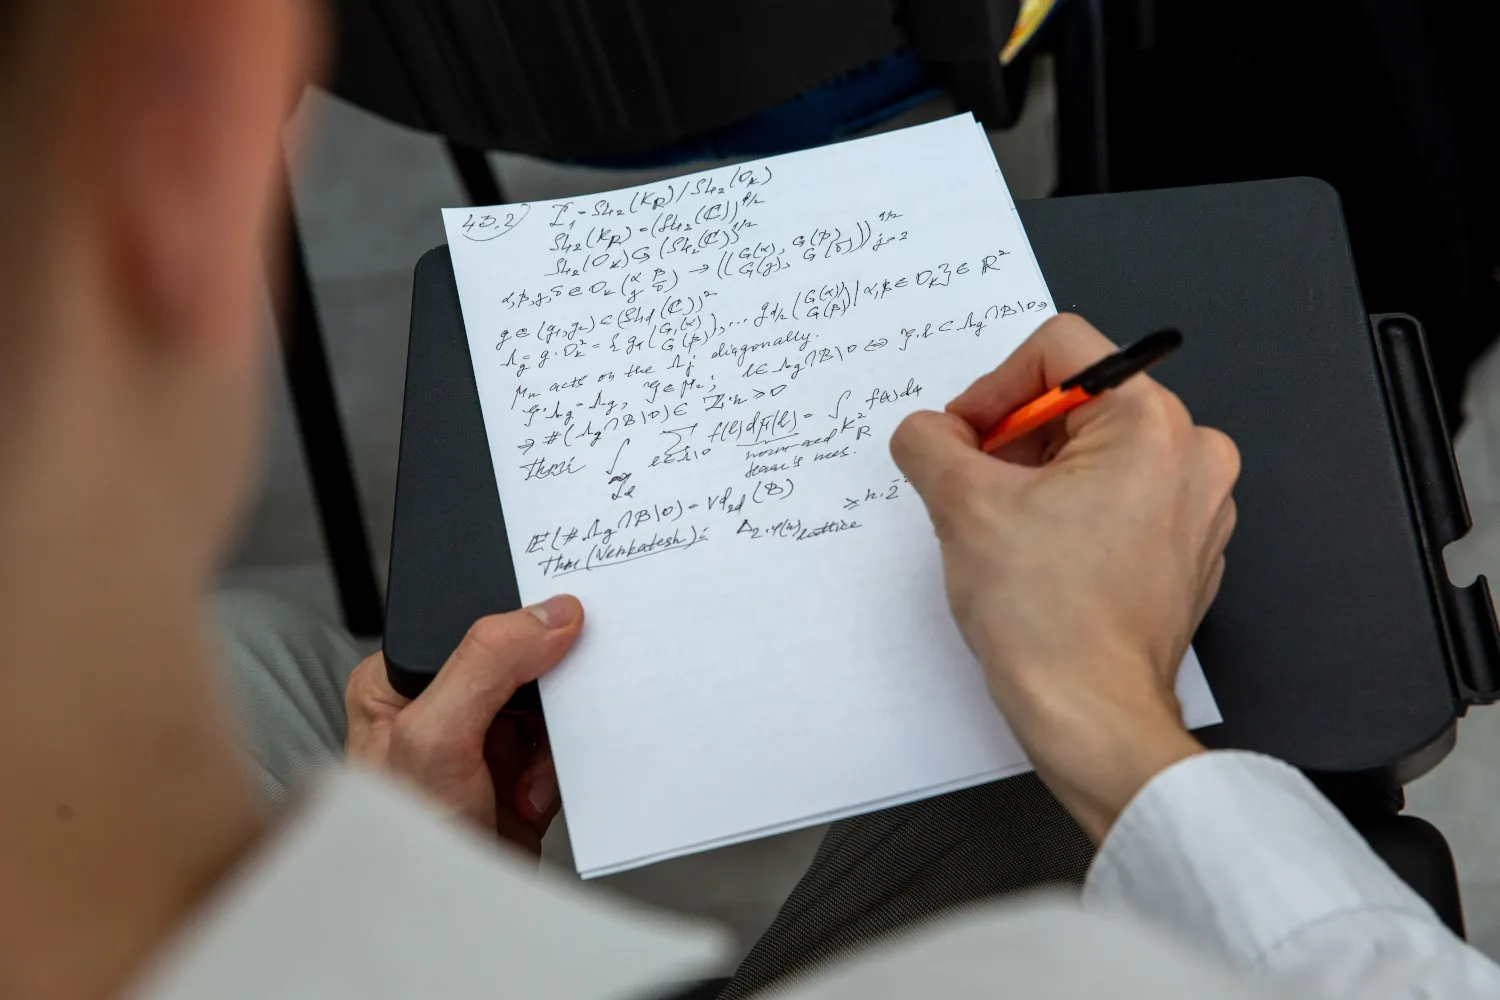 4.3.2) I₁ = SL₂(K_ℝ)/SL₂(O_K)
SL₂(K_ℝ) = (SL₂(ℂ))^{φ/2}
SL₂(O_K) G (SL₂(ℂ))^{φ/2}
α, β, γ, δ ∈ O_K (α β γ δ) → ((G(α), G(β) G(γ), G(δ)))^{φ/2}_{j=2}
g ∈ (g₁, g₂) ∈ (SL_d(ℂ))²
Λ_g = g · O_K² = { g₁ (G₁(α) G(β)), ... g_{d/2} (G(α) G(β)) | α, β ∈ O_K } ∈ ℝ²
μ_n acts on the Λ_j diagonally.
ζ·Λ_g = Λ_g, ζ ∈ μ_n; l ∈ Λ_g ∩ B\0 ⇔ ζ·l ⊂ Λ_g ∩ B\0 ⇒
⇒ #(Λ_g ∩ B\0) ∈ ℤ·n > 0
Thm: ∫ Σ_{l∈Λ\0} f(l) dμ(l) = ∫_{K_ℝ²} f(x) dx
normed
Haar's mes.
𝔼(# Λ_g ∩ B\0) = Vol_{2d}(B)
Thm (Venkatesh): Δ_{2·φ(n)} lattice ≥ n · 2^-